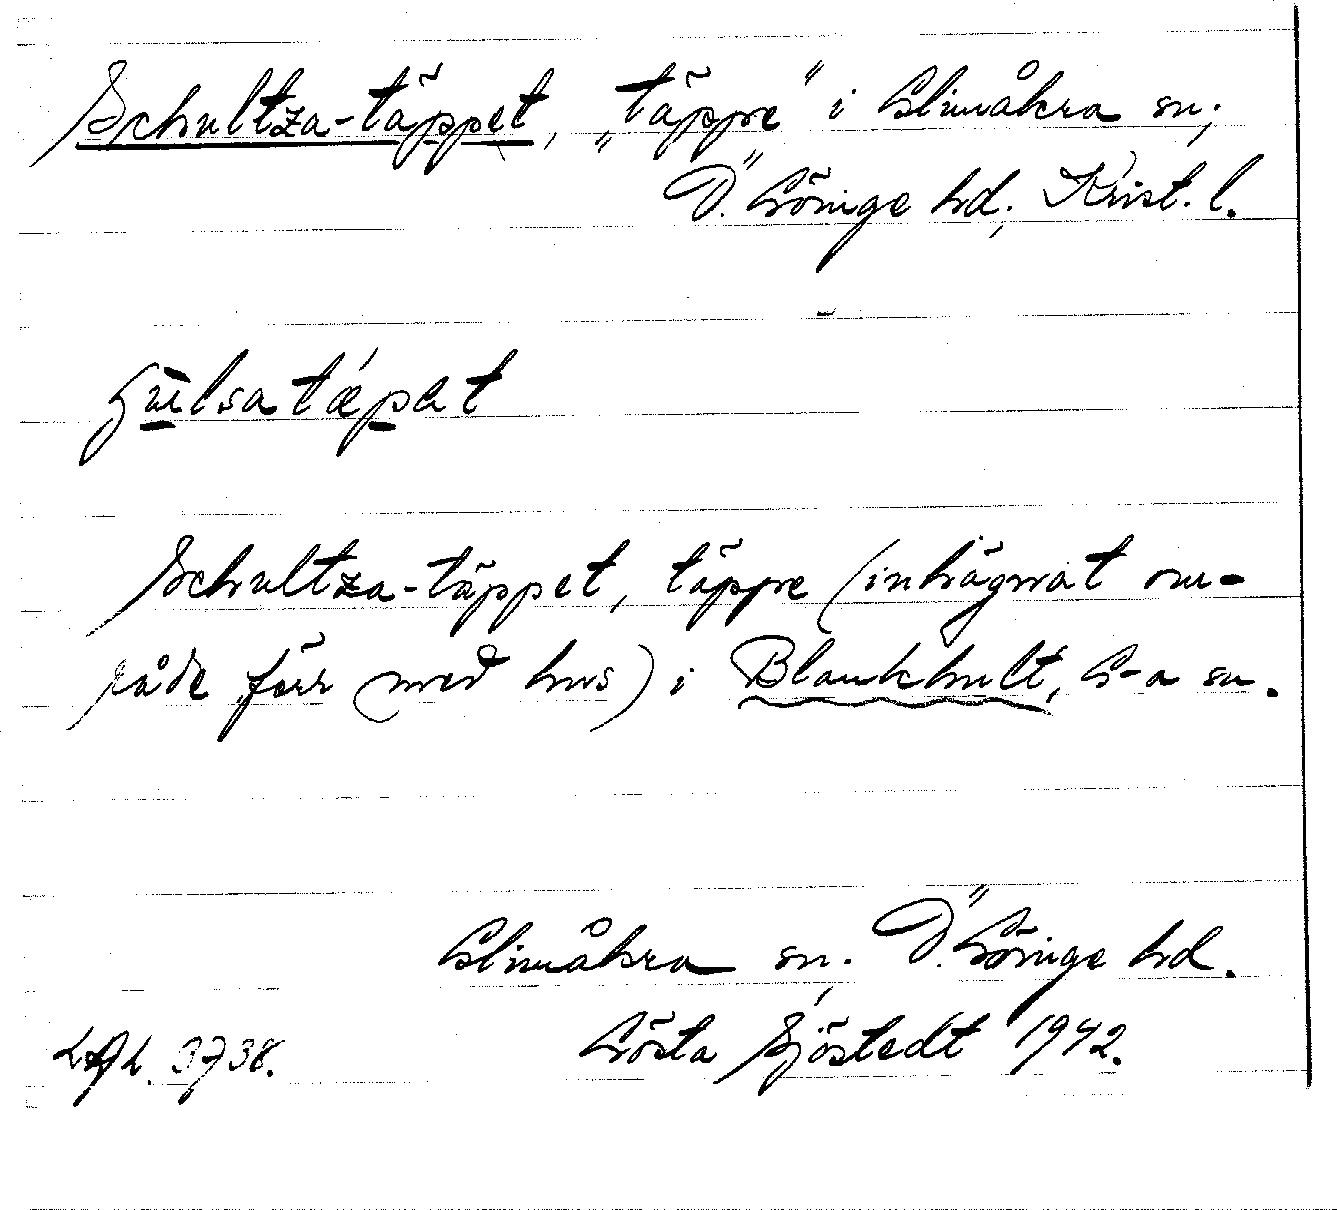 Schultza-täppet, "täppe" i Glimåkra sn;
Ö. Göinge hd, Krist. l.
Schultza-täppet, täppe (inhägnat om-
råde förr med hus) i Blankhult, G-a sn.
Glimåkra sn. Ö. Göinge hd.
Gösta Sjöstedt 1942.
3738.